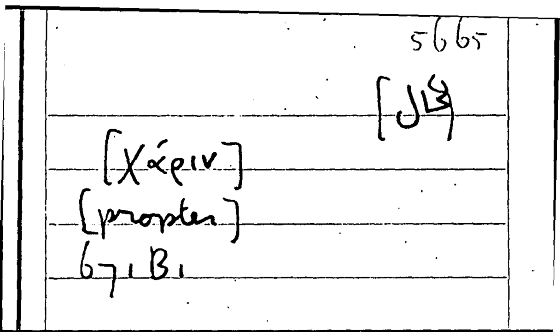 5665
[χάριν]
[propter]
671 B1